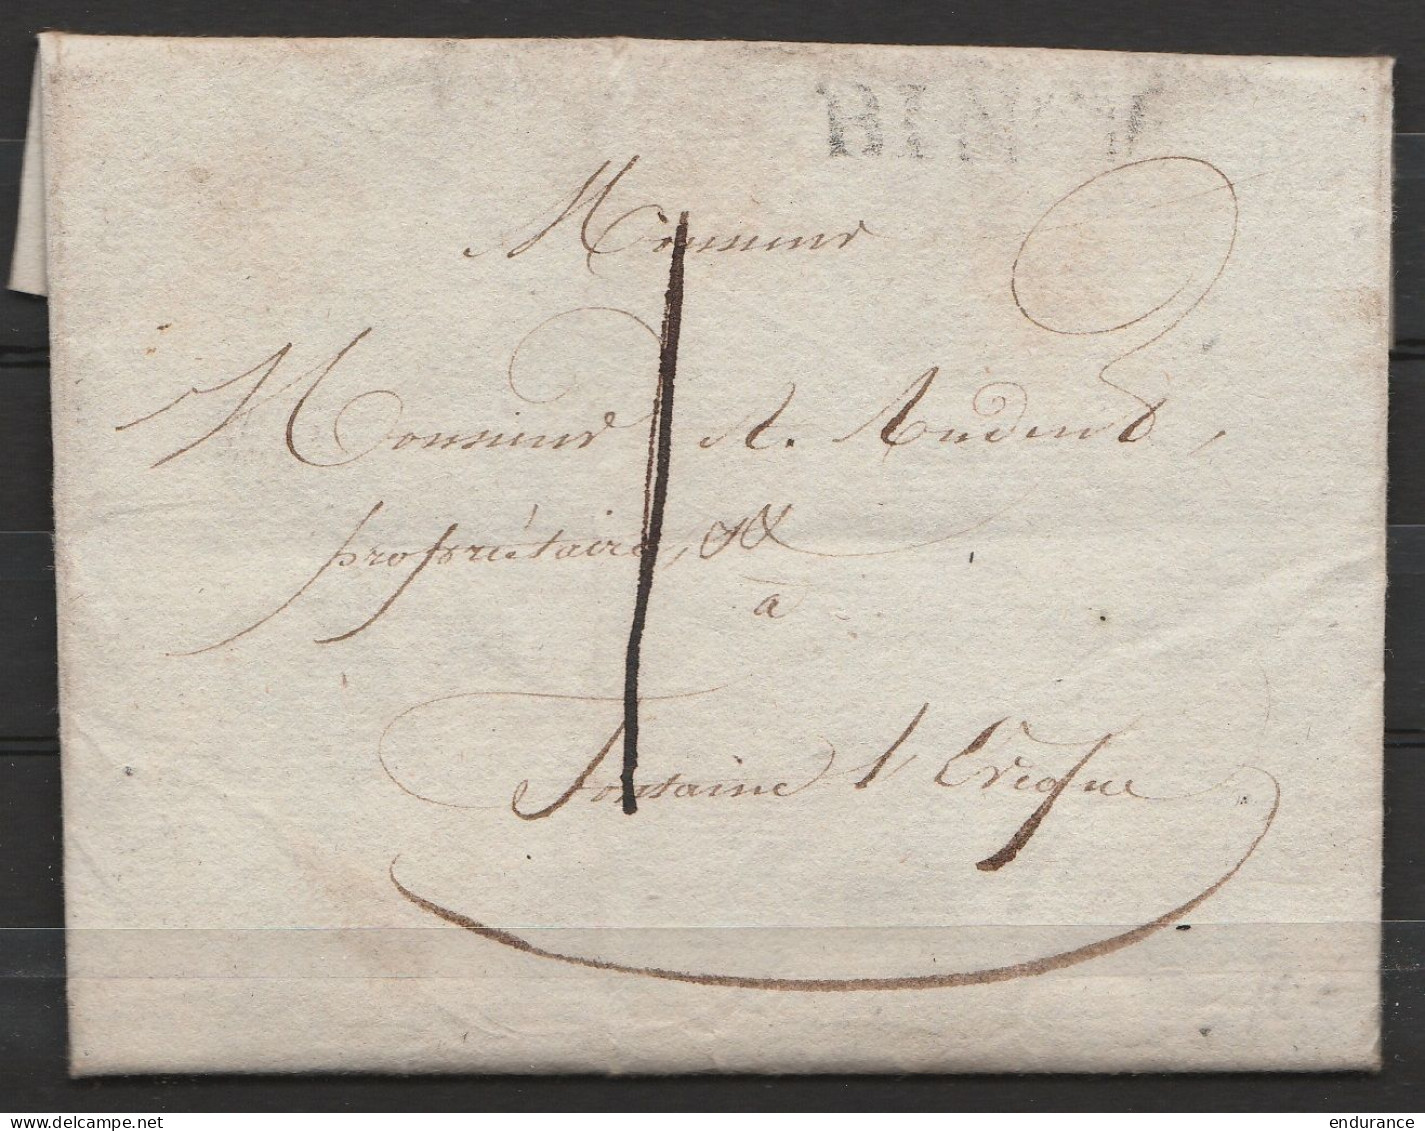 BINCH
Monsieur
Monsieur A. Audent,
propriétaire, &&
à
fontaine l'Evêque
delcampe.net
endurance